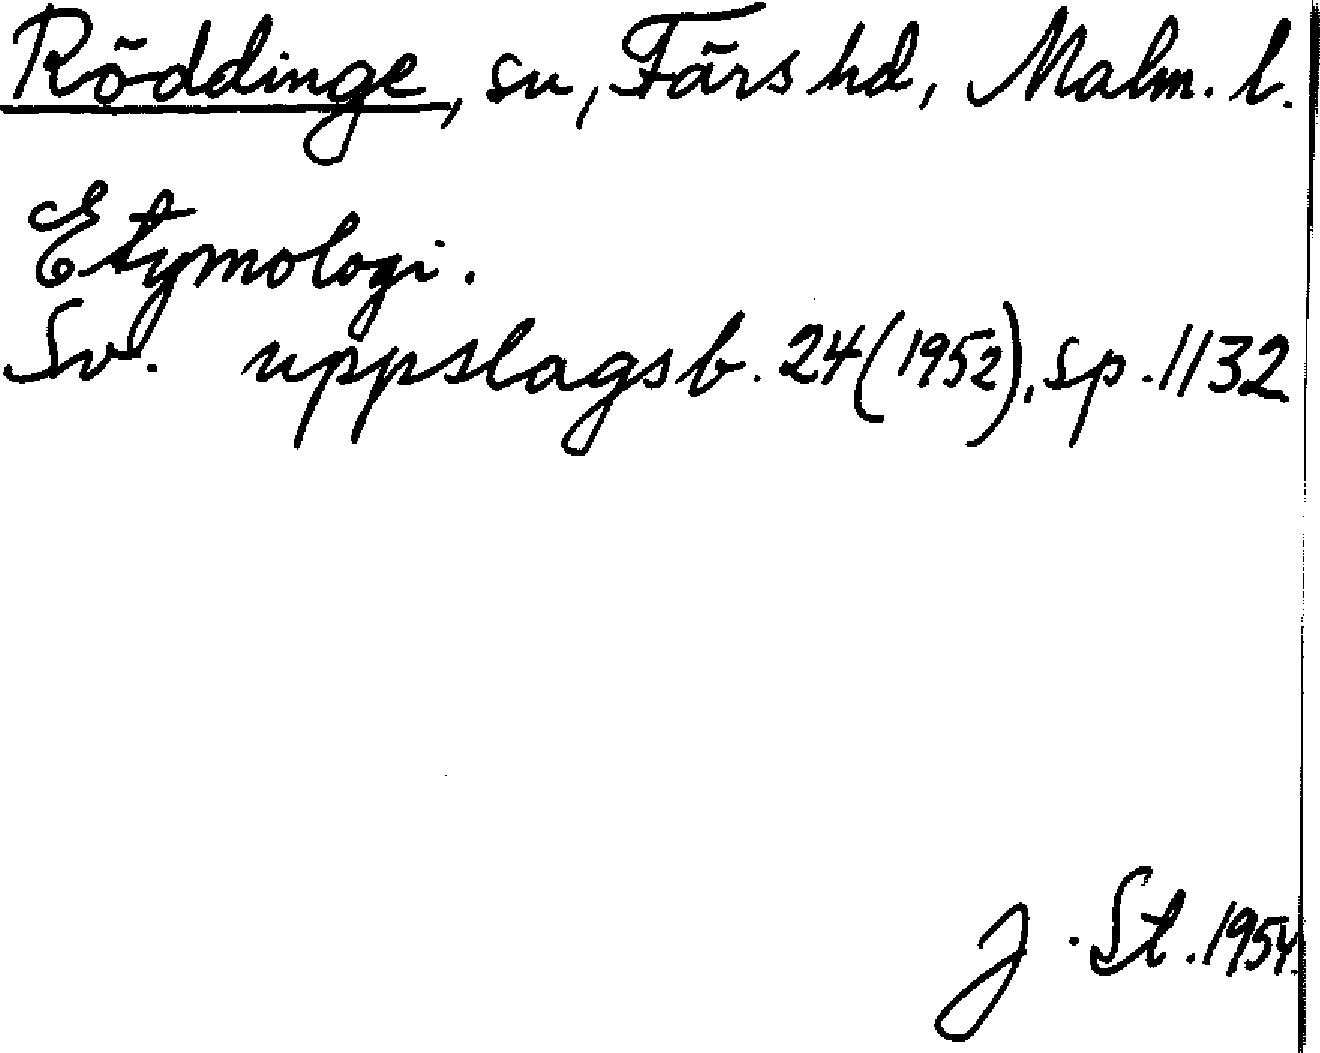 Röddinge, sn, Färs hd, Malm. l.
Etymologi.
Sv. uppslagsb. 24 (1952), sp. 1132
J. St. 1954.